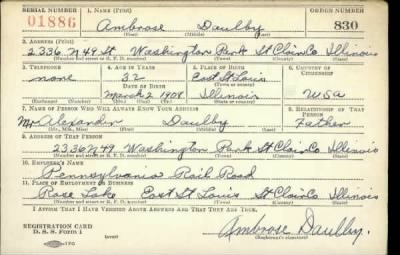 SERIAL NUMBER 1. NAME (Print) ORDER NUMBER
01886 Ambrose Daulby 830
(First) (Middle) (Last)
2. ADDRESS (Print)
2336 N 49 St Washington Park St Clair Co Illinois
(Number and street or R. F. D. number) (Town) (County) (State)
3. TELEPHONE 4. AGE IN YEARS 5. PLACE OF BIRTH 6. COUNTRY OF CITIZENSHIP
none 32 East St Louis
DATE OF BIRTH (Town or county)
March 2 1908 Illinois USA
(Exchange) (Number) (Mo.) (Day) (Yr.) (State or country)
7. NAME OF PERSON WHO WILL ALWAYS KNOW YOUR ADDRESS 8. RELATIONSHIP OF THAT PERSON
Mr Alexander Daulby Father
(Mr., Mrs., Miss) (First) (Middle) (Last)
9. ADDRESS OF THAT PERSON
2336 N 49 Washington Park St Clair Co Illinois
(Number and street or R. F. D. number) (Town) (County) (State)
10. EMPLOYER'S NAME
Pennsylvania Rail Road
11. PLACE OF EMPLOYMENT OR BUSINESS
Rose Lake East St Louis St Clair Co Illinois
(Number and street or R. F. D. number) (Town) (County) (State)
I AFFIRM THAT I HAVE VERIFIED ABOVE ANSWERS AND THAT THEY ARE TRUE.
REGISTRATION CARD
D. S. S. Form 1 Ambrose Daulby.
(Registrant's signature)